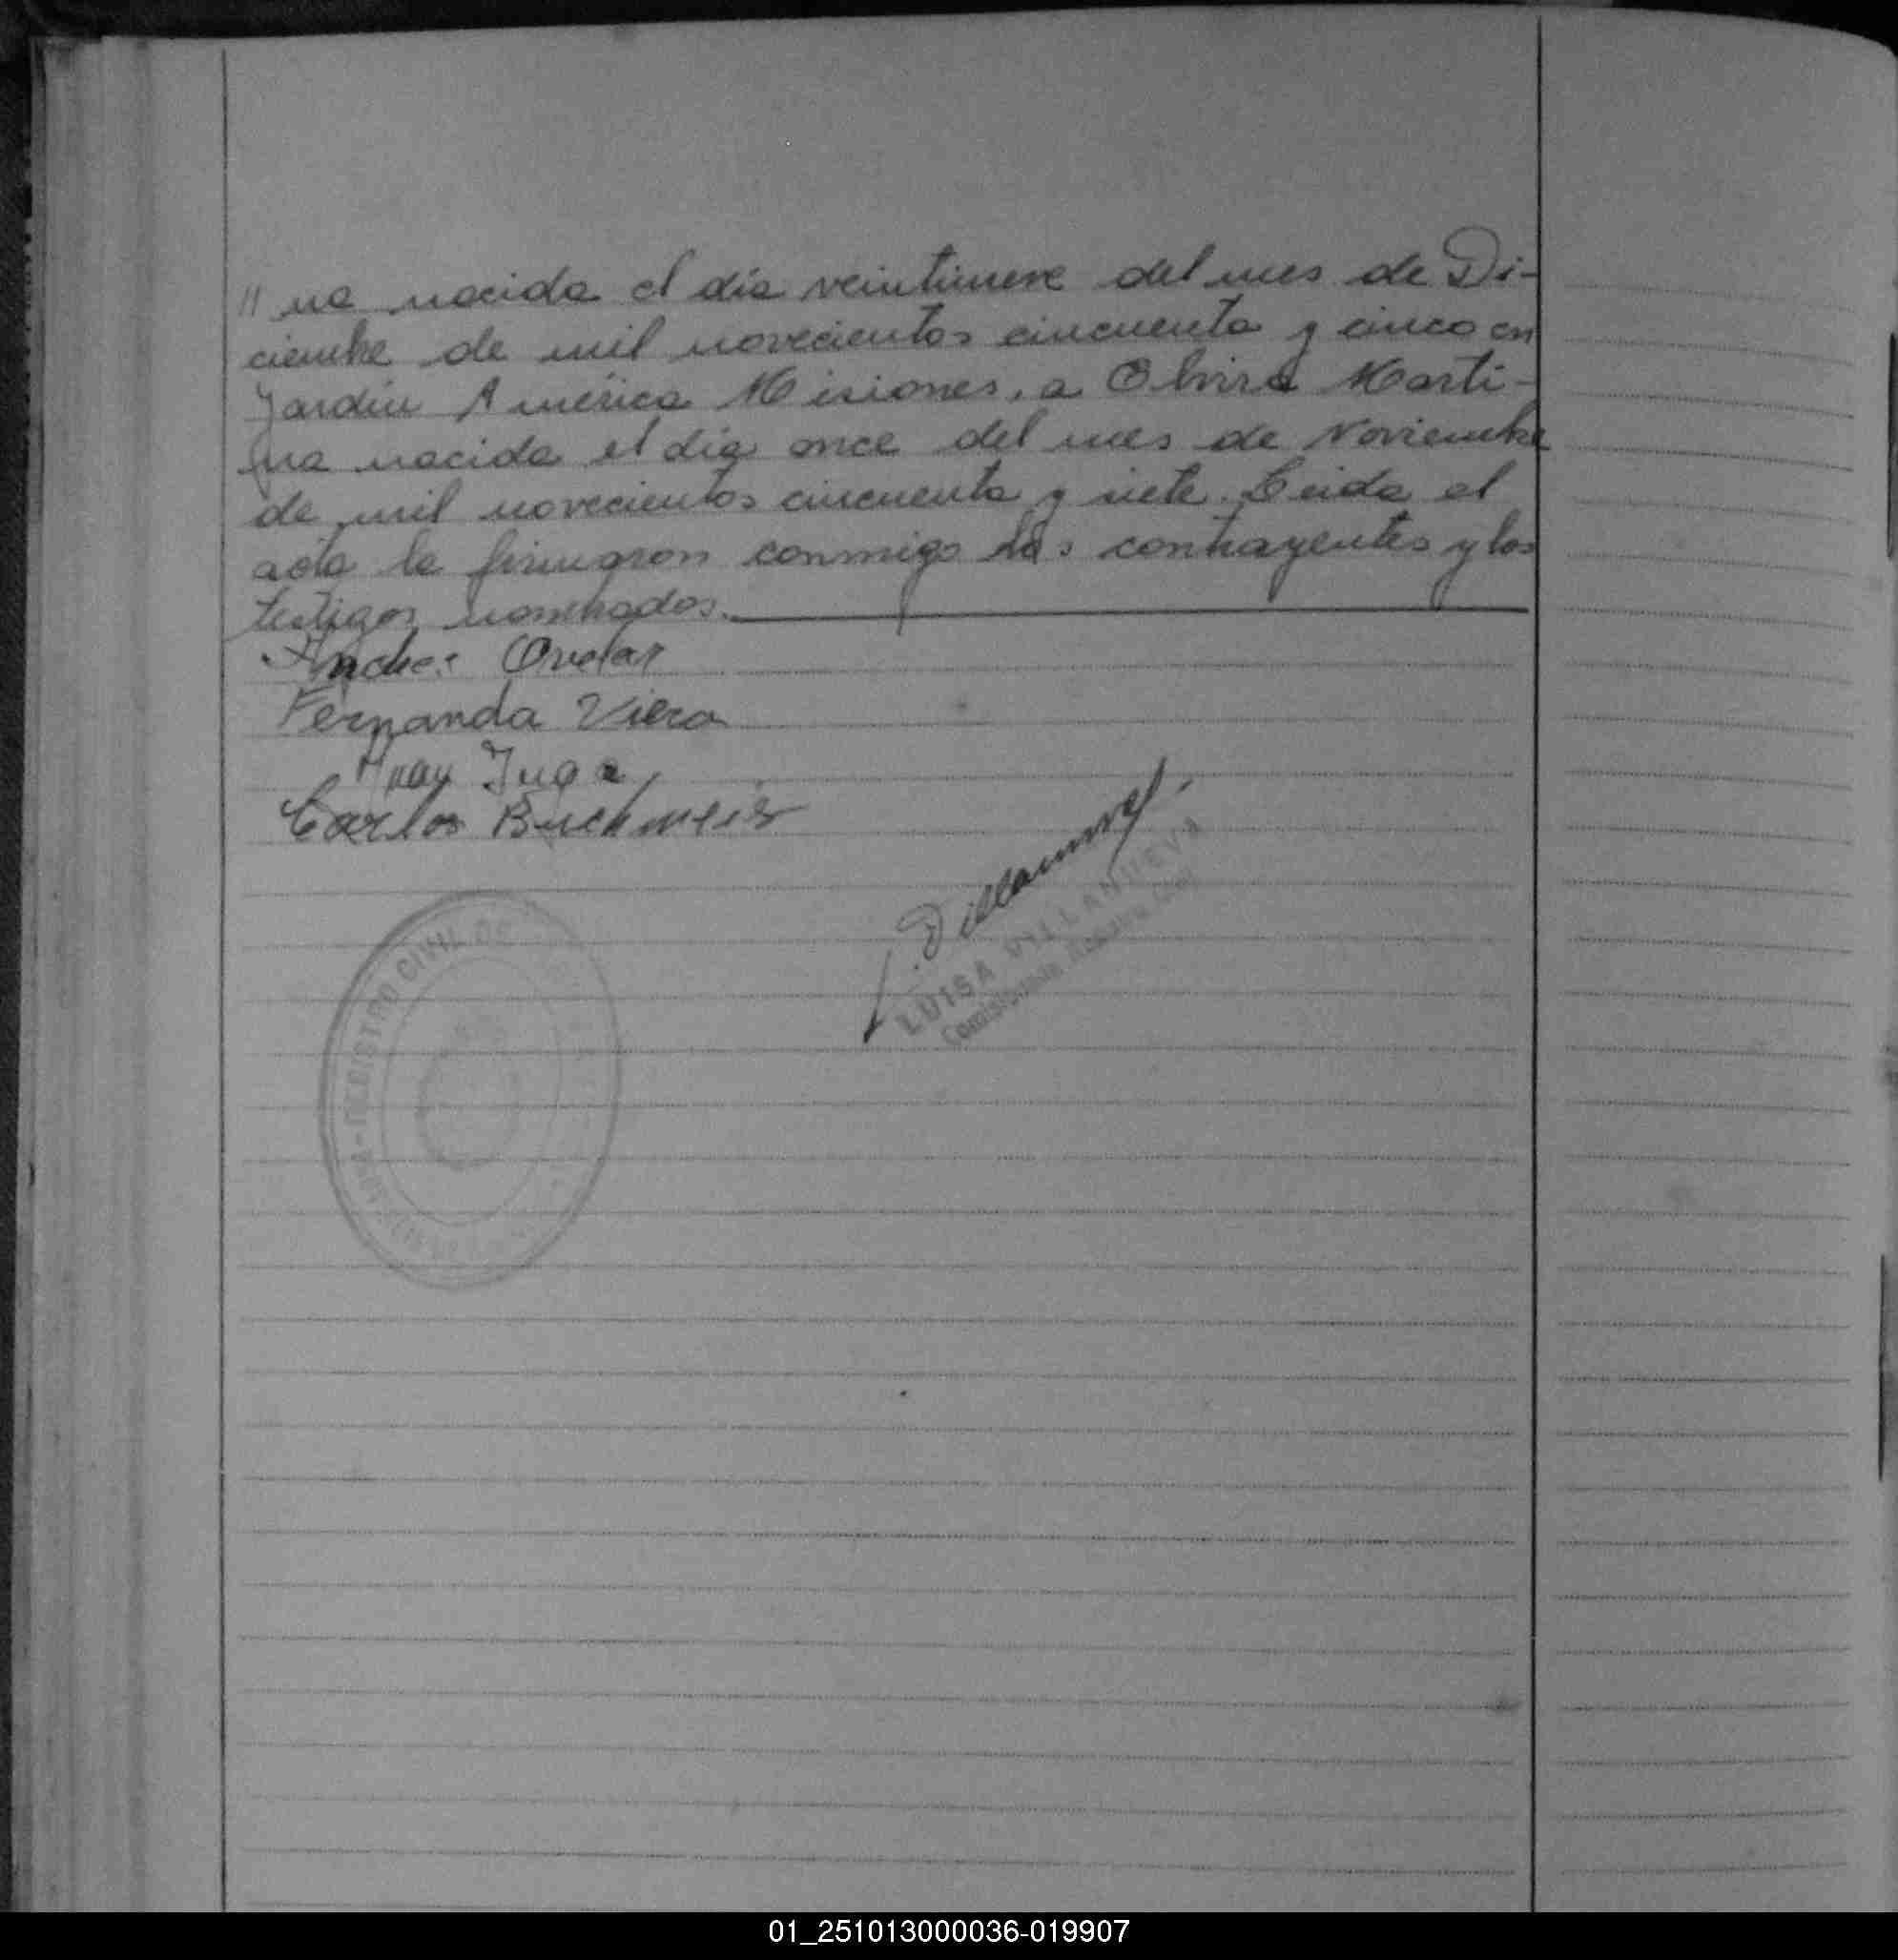 // na nacida el día veintinueve del mes de Di-
ciembre de mil novecientos cincuenta y cinco en
Jardín América Misiones, a Elvira Marti-
na nacida el día once del mes de Noviembre
de mil novecientos cincuenta y siete. Leida el
acta la firmaron conmigo los contrayentes y los
testigos nombrados.
Andres Ovelar
Fernanda Viera
Juga
Carlos Buchmeis
L. Villanueva
LUISA VILLANUEVA
REGISTRO CIVIL DE
01_251013000036-019907